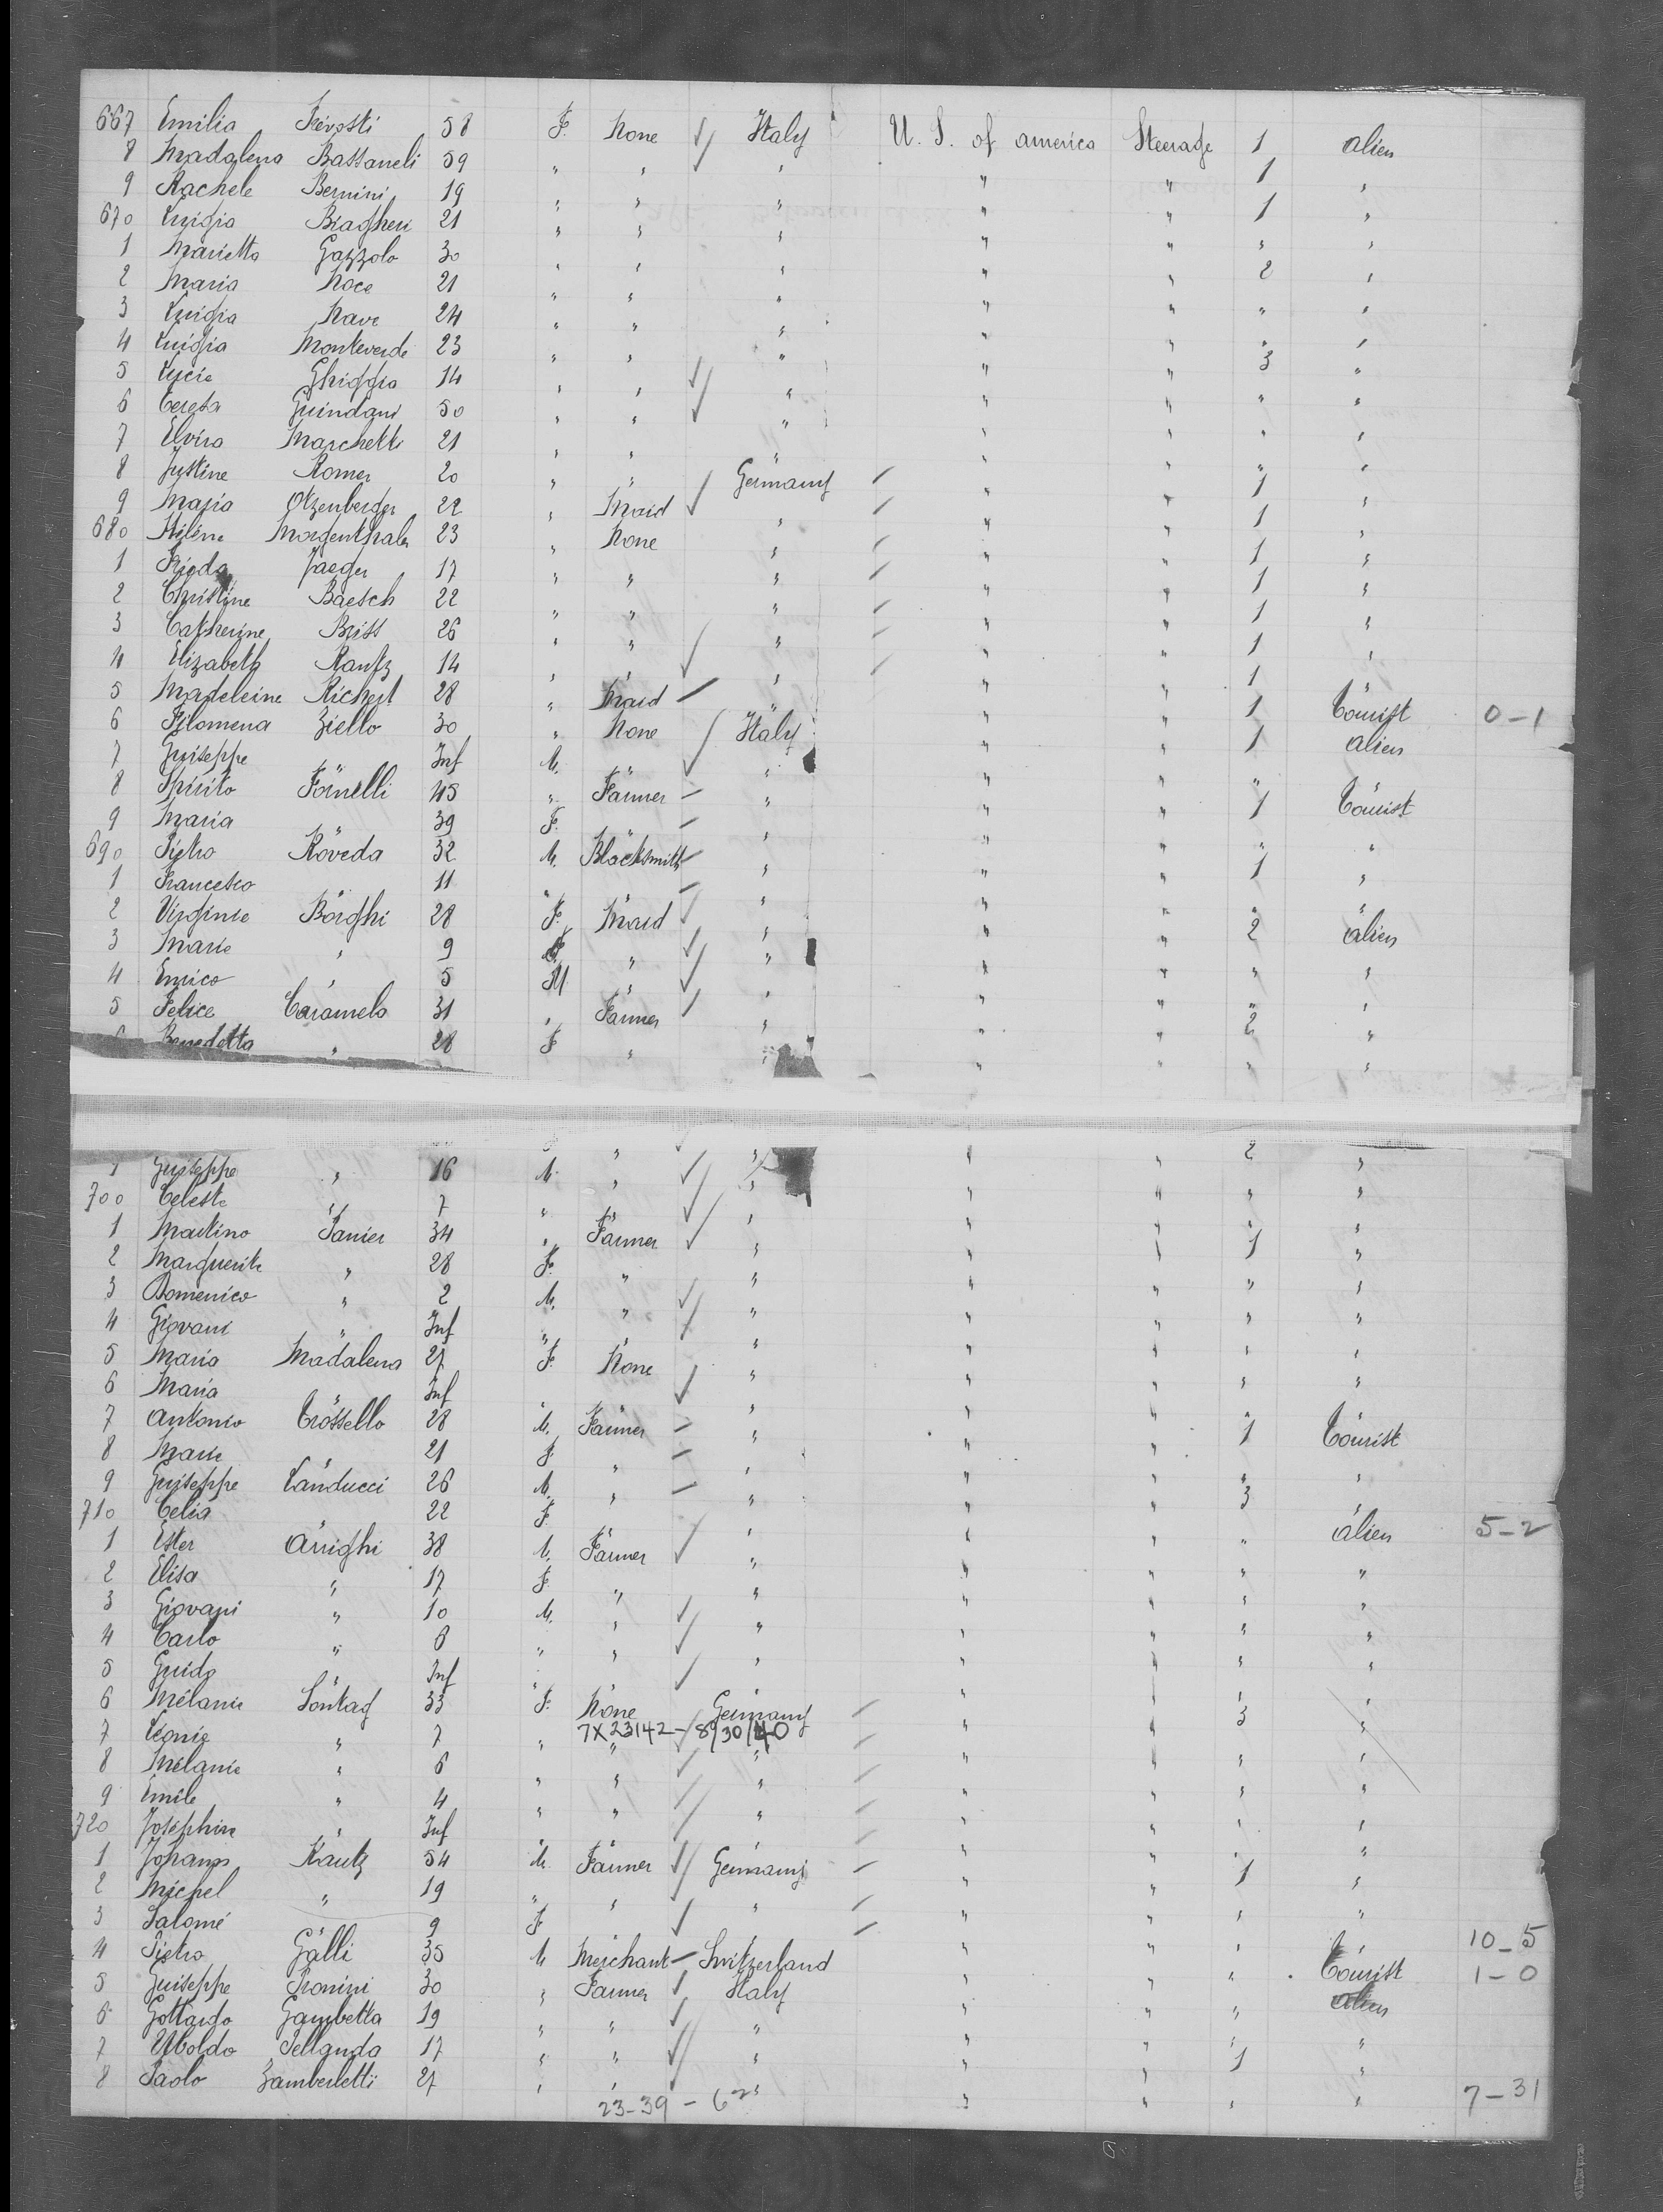 667 Emilia Prevosti 58 F. None Italy U. S. of america Steerage 1 alien
8 Madalena Bassaneli 59 " " " " " 1 "
9 Rachele Bernini 19 " " " " " 1 "
670 Luigia Biagheri 21 " " " " " " "
1 Marietta Gazzolo 30 " " " " " 2 "
2 Maria Noce 21 " " " " " " "
3 Luigia Nave 24 " " " " " " "
4 Luigia Monteverde 23 " " " " " 3 "
5 Lucie Ghiggia 14 " " " " " " "
6 Teresa Guindani 50 " " " " " " "
7 Elvira Marchetti 21 " " " " " " "
8 Justine Romer 20 " " Germany " " 1 "
9 Maria Otzenberger 22 " Maid " " " 1 "
680 Hélène Morgenthaler 23 " None " " " 1 "
1 Frieda Jaeger 17 " " " " " 1 "
2 Christine Baesch 22 " " " " " 1 "
3 Catherine Briss 26 " " " " " 1 "
4 Elizabeth Kautz 14 " " " " " 1 "
5 Madeleine Richert 28 " Maid " " " 1 Tourist 0-1
6 Filomena Ziello 30 " None Italy " " 1 alien
7 Guiseppe " Inf M. " " " " " "
8 Spirito Fornelli 45 " Farmer " " " 1 Tourist
9 Maria " 39 F. " " " " " "
690 Pietro Roveda 32 M. Blacksmith " " " 1 "
1 Francesco " 11 " " " " " " "
2 Virginie Borghi 28 F. Maid " " " 2 alien
3 Marie " 9 F. " " " " " "
4 Enrico " 5 M " " " " " "
5 Felice Caramela 31 " Farmer " " " 2 "
6 Benedetta " 28 F " " " " " "
" " " " 2 "
Guiseppe " 16 M. " " " " " "
700 Celeste " 7 " " " " " " "
1 Martino Panier 34 " Farmer " " " 1 "
2 Marguerite " 28 F. " " " " " "
3 Domenico " 2 M. " " " " " "
4 Giovani " Inf " " " " " " "
5 Maria Madalena 27 F. None " " " " "
6 Maria " Inf " " " " " " "
7 Antonio Crossello 28 M. Farmer " " " 1 Tourist
8 Marie " 21 F. " " " " " "
9 Guiseppe Landucci 26 M. " " " " 3 "
710 Celia " 22 F. " " " " " alien 5-2
1 Ester Arrighi 38 M. Farmer " " " " "
2 Elisa " 17 F. " " " " " "
3 Giovani " 10 M. " " " " " "
4 Carlo " 8 " " " " " " "
5 Guido " Inf " " " " " " "
6 Mélanie Sontag 33 F. None Germany " " 3 "
7 Leonie " 7 " 7X23142-8/30/40 " " " " "
8 Mélanie " 6 " " " " " " "
9 Emile " 4 " " " " " " "
720 Joséphine " Inf " " " " " " "
1 Johann Kautz 54 M. Farmer Germany " " 1 "
2 Michel " 19 " " " " " " "
3 Salomé " 9 F " " " " " " 10-5
4 Pietro Galli 35 M Merchant Switzerland " " " Tourist 1-0
5 Guiseppe Pronini 30 " Farmer Italy " " " alien
6 Gottardo Gambetta 19 " " " " " " "
7 Uboldo Sellanda 17 " " " " " 1 "
8 Paolo Zamberletti 27 " " " " " " " 7-31
23-39-62